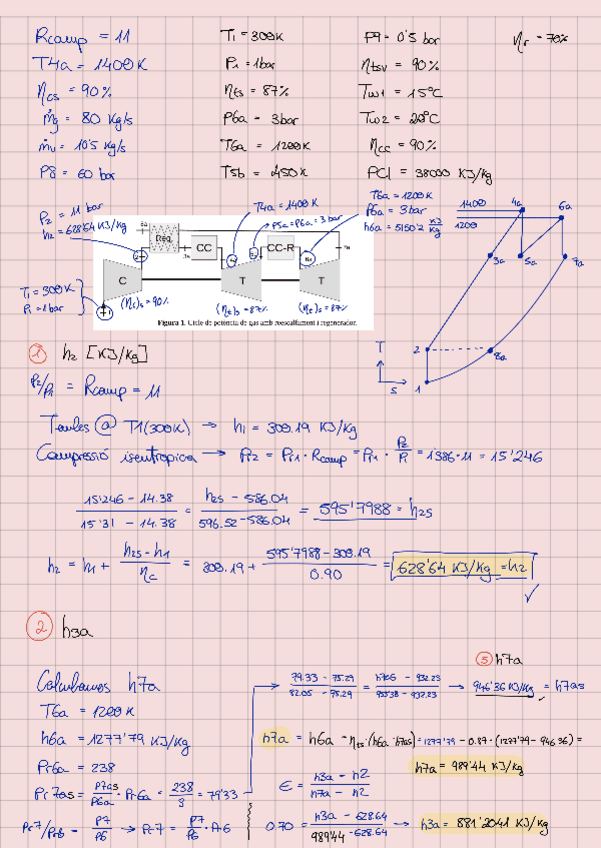 Rcomp = 11
T4a = 1400 K
ηcs = 90%
ṁg = 80 Kg/s
ṁv = 10'5 kg/s
P8 = 60 bar
T1 = 300K
P1 = 1bar
ηts = 87%
P6a = 3bar
T6a = 1200K
T5b = 450K
P9 = 0'5 bar
ηtsv = 90%
Tw1 = 15°C
Tw2 = 20°C
ηcc = 90%
PCI = 38000 KJ/Kg
ηr = 70%
P2 = 11 bar
h2 = 628'64 KJ/Kg
T4a = 1400 K
P5a = P6a = 3 bar
T6a = 1200K
P6a = 3 bar
h6a = 5150'2 KJ/Kg
T1 = 300K
P1 = 1 bar
Reg
CC
CC-R
C
T
T
(ηc)s = 90%
(ηt)s = 87%
(ηt)s = 87%
Figura 1. Cicle de potència de gas amb reescalfament i regenerador.
1400
1200
4a
6a
3a
5a
7a
2
8a
1
T
s
① h2 [KJ/Kg]
P2/P1 = Rcomp = 11
Taules @ T1(300K) → h1 = 300.19 KJ/Kg
Compressió isentropica → Pr2 = Pr1 · Rcomp = Pr1 · P2/P1 = 1'386·11 = 15'246
15'246 - 14.38 / 15'31 - 14.38 = h2s - 586.04 / 596.52 - 586.04 = 595'7988 = h2s
h2 = h1 + h2s - h1 / ηc = 300.19 + 595'7988 - 300.19 / 0.90 = 628'64 KJ/Kg = h2
② h3a
Calculamos h7a
T6a = 1200 K
h6a = 1277'79 KJ/Kg
Pr6a = 238
Pr7as = P7as/P6a · Pr6a = 238/3 = 79'33
Pr7/Pr6 = P7/P6 → Pr7 = P7/P6 · Pr6
⑤ h7a
79.33 - 75.29 / 82.05 - 75.29 = h7as - 932.93 / 955.38 - 932.93 → 946'36 KJ/Kg = h7as
h7a = h6a - ηts·(h6a - h7as) = 1277'79 - 0.87·(1277'79 - 946'36) =
h7a = 989'44 KJ/Kg
ϵ = h3a - h2 / h7a - h2
0.70 = h3a - 628.64 / 989'44 - 628.64 → h3a = 881'2041 KJ/Kg